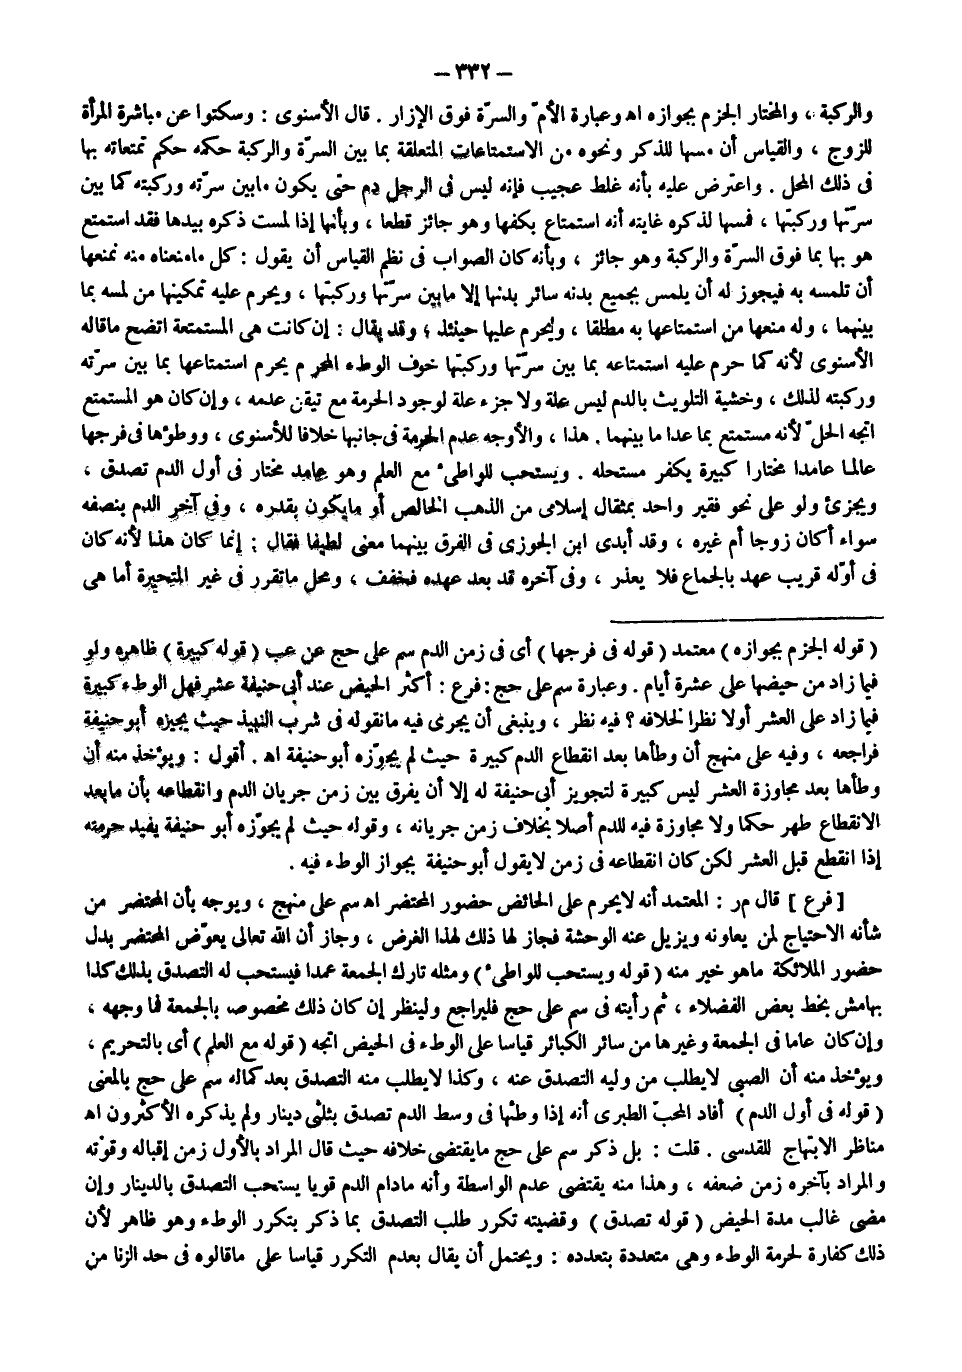 – ٣٣٢ –
والركبة ، والمختار الجزم بجوازه اه وعبارة الأمّ والسرّة فوق الإزار . قال الأسنوى : وسكتوا عن مباشرة المرأة
للزوج ، والقياس أن مسها للذكر ونحوه من الاستمتاعات المتعلقة بما بين السرّة والركبة حكمه حكم تمتعاته بها
فى ذلك المحل . واعترض عليه بأنه غلط عجيب فإنه ليس فى الرجل دم حتى يكون مابين سرّته وركبته كما بين
سرّتها وركبتها ، فمسها لذكره غايته أنه استمتاع بكفها وهو جائز قطعا ، وبأنها إذا لمست ذكره بيدها فقد استمتع
هو بها بما فوق السرّة والركبة وهو جائز ، وبأنه كان الصواب فى نظم القياس أن يقول : كل مامنعناه منه نمنعها
أن تلمسه به فيجوز له أن يلمس بجميع بدنه سائر بدنها إلا مابين سرّتها وركبتها ، ويحرم عليه تمكينها من لمسه بما
بينهما ، وله منعها من استمتاعها به مطلقا ، وليحرم عليها حينئذ ؛ وقد يقال : إن كانت هى المستمتعة اتضح ماقاله
الأسنوى لأنه كما حرم عليه استمتاعه بما بين سرّتها وركبتها خوف الوطء المحرم يحرم استمتاعها بما بين سرّته
وركبته لذلك ، وخشية التلويث بالدم ليس علة ولا جزء علة لوجود الحرمة مع تيقن عدمه ، وإن كان هو المستمتع
اتجه الحلّ لأنه مستمتع بما عدا ما بينهما . هذا ، والأوجه عدم الحرمة فى جانبها خلافا للأسنوى ، ووطؤها فى فرجها
عالما عامدا مختارا كبيرة يكفر مستحله . ويستحب للواطئ مع العلم وهو عامد مختار فى أول الدم تصدق ،
ويجزئ ولو على نحو فقير واحد بمثقال إسلامى من الذهب الخالص أو مايكون بقدره ، وفى آخر الدم بنصفه
سواء أكان زوجا أم غيره ، وقد أبدى ابن الجوزى فى الفرق بينهما معنى لطيفا فقال : إنما كان هذا لأنه كان
فى أوّله قريب عهد بالجماع فلا يعذر ، وفى آخره قد بعد عهده فخفف ، ومحل ماتقرر فى غير المتحيرة أما هى
( قوله الجزم بجوازه ) معتمد ( قوله فى فرجها ) أى فى زمن الدم سم على حج عن عب ( قوله كبيرة ) ظاهره ولو
فيما زاد من حيضها على عشرة أيام . وعبارة سم على حج : فرع : أكثر الحيض عند أبى حنيفة عشر فهل الوطء كبيرة
فيما زاد على العشر أولا نظرا لخلافه ؟ فيه نظر ، وينبغى أن يجرى فيه مانقوله فى شرب النبيذ حيث يجيزه أبو حنيفة
فراجعه ، وفيه على منهج أن وطأها بعد انقطاع الدم كبيرة حيث لم يجوّزه أبو حنيفة اه . أقول : ويؤخذ منه أن
وطأها بعد مجاوزة العشر ليس كبيرة لتجويز أبى حنيفة له إلا أن يفرق بين زمن جريان الدم وانقطاعه بأن مابعد
الانقطاع طهر حكما ولا مجاوزة فيه للدم أصلا بخلاف زمن جريانه ، وقوله حيث لم يجوّزه أبو حنيفة يفيد حرمته
إذا انقطع قبل العشر لكن كان انقطاعه فى زمن لايقول أبو حنيفة بجواز الوطء فيه .
[ فرع ] قال مر : المعتمد أنه لايحرم على الحائض حضور المحتضر اه سم على منهج ، ويوجه بأن المحتضر من
شأنه الاحتياج لمن يعاونه ويزيل عنه الوحشة فجاز لها ذلك لهذا الغرض ، وجاز أن الله تعالى يعوّض المحتضر بدل
حضور الملائكة ماهو خير منه ( قوله ويستحب للواطئ ) ومثله تارك الجمعة عمدا فيستحب له التصدق بذلك كذا
بهامش بخط بعض الفضلاء ، ثم رأيته فى سم على حج فليراجع ولينظر إن كان ذلك مخصوصا بالجمعة فما وجهه ،
وإن كان عاما فى الجمعة وغيرها من سائر الكبائر قياسا على الوطء فى الحيض اتجه ( قوله مع العلم ) أى بالتحريم ،
ويؤخذ منه أن الصبى لايطلب من وليه التصدق عنه ، وكذا لايطلب منه التصدق بعد كماله سم على حج بالمعنى
( قوله فى أول الدم ) أفاد المحبّ الطبرى أنه إذا وطئها فى وسط الدم تصدق بثلثى دينار ولم يذكره الأكثرون اه
مناظر الابتهاج للقدسى . قلت : بل ذكر سم على حج مايقتضى خلافه حيث قال المراد بالأول زمن إقباله وقوّته
والمراد بآخره زمن ضعفه ، وهذا منه يقتضى عدم الواسطة وأنه مادام الدم قويا يستحب التصدق بالدينار وإن
مضى غالب مدة الحيض ( قوله تصدق ) وقضيته تكرر طلب التصدق بما ذكر بتكرر الوطء وهو ظاهر لأن
ذلك كفارة لحرمة الوطء وهى متعددة بتعدده : ويحتمل أن يقال بعدم التكرر قياسا على ماقالوه فى حد الزنا من